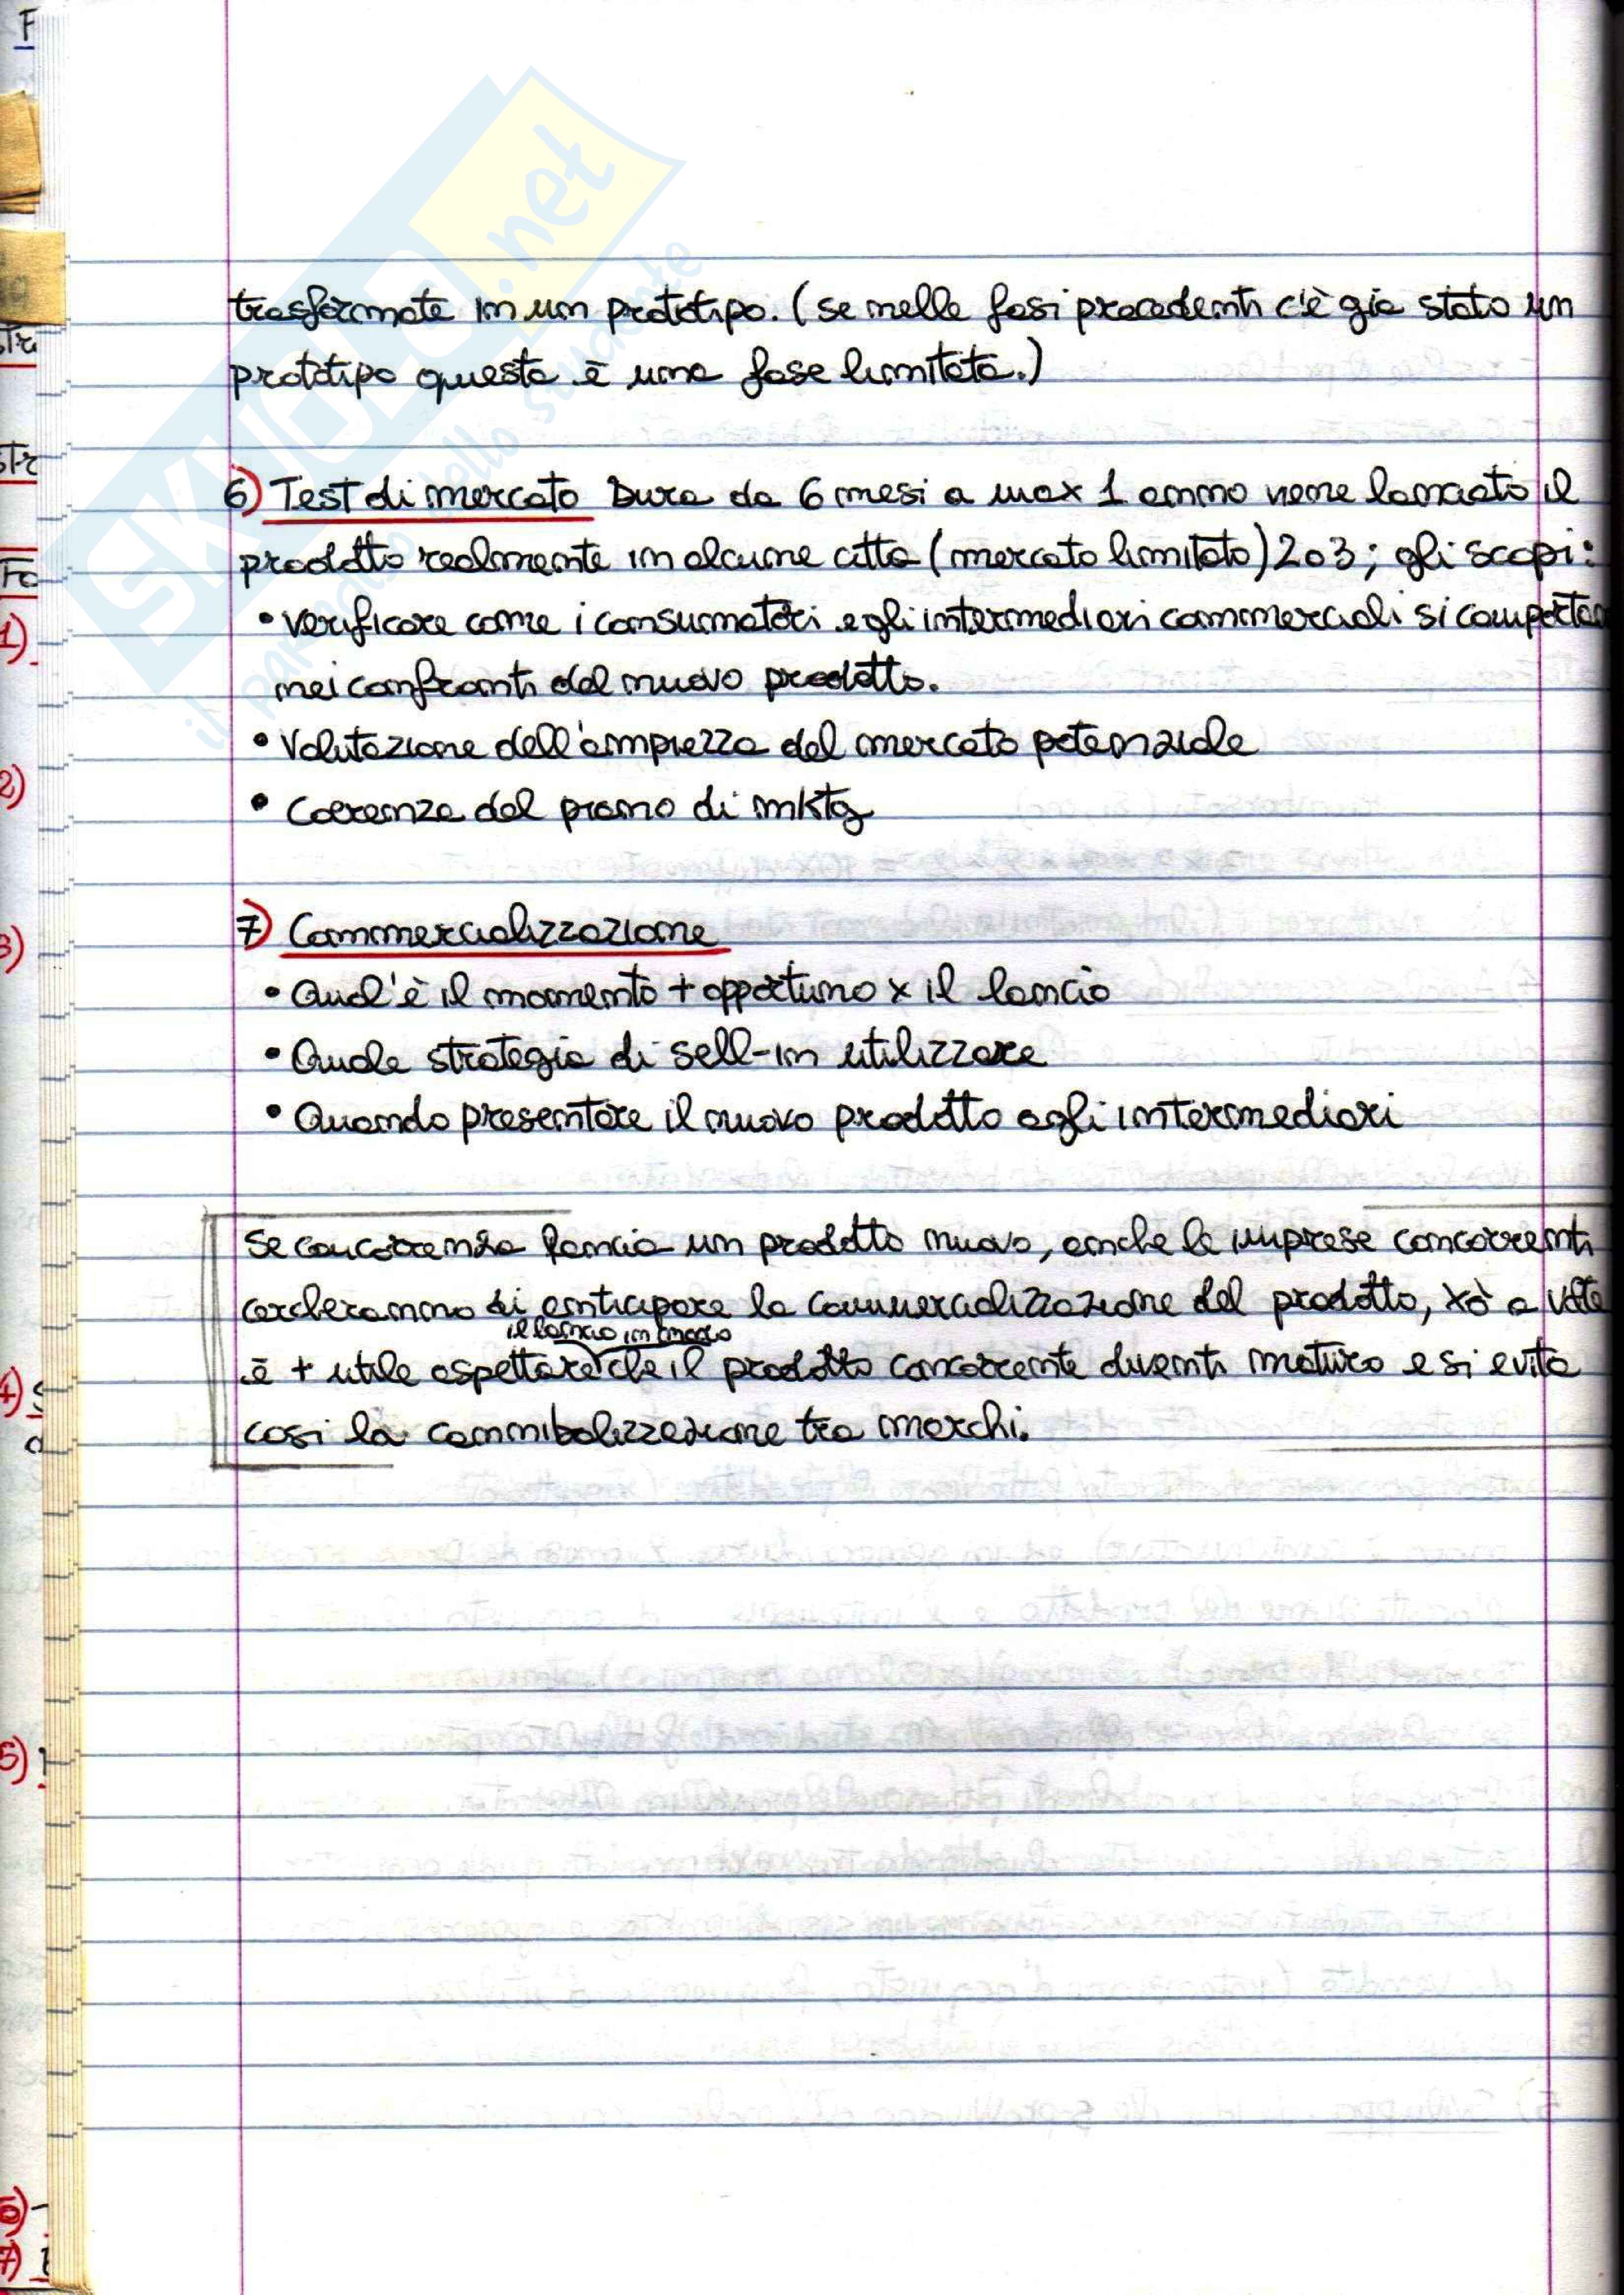 trasformate in un prototipo. (se nelle fasi precedenti c'è già stato un
prototipo questa è una fase limitata.)
6) Test di mercato Dura da 6 mesi a max 1 anno viene lanciato il
prodotto realmente in alcune città (mercato limitato) 2 o 3; gli scopi:
• verificare come i consumatori e gli intermediari commerciali si comportan
nei confronti del nuovo prodotto.
• Valutazione dell'ampiezza del mercato potenziale
• Coerenza del piano di mktg
7) Commercializzazione
• Qual'è il momento + opportuno x il lancio
• Quale strategia di sell-in utilizzare
• Quando presentare il nuovo prodotto agli intermediari
Se concorrenza lancia un prodotto nuovo, anche le imprese concorrenti
cercheranno di anticipare la commercializzazione del prodotto, xò a volte
il lancio in
è + utile aspettare che il prodotto concorrente diventi maturo e si evita
così la cannibalizzazione tra marchi.
SKUOLA.net
il paradiso dello studente
F
1)
2)
3)
4)
5)
6)
7)